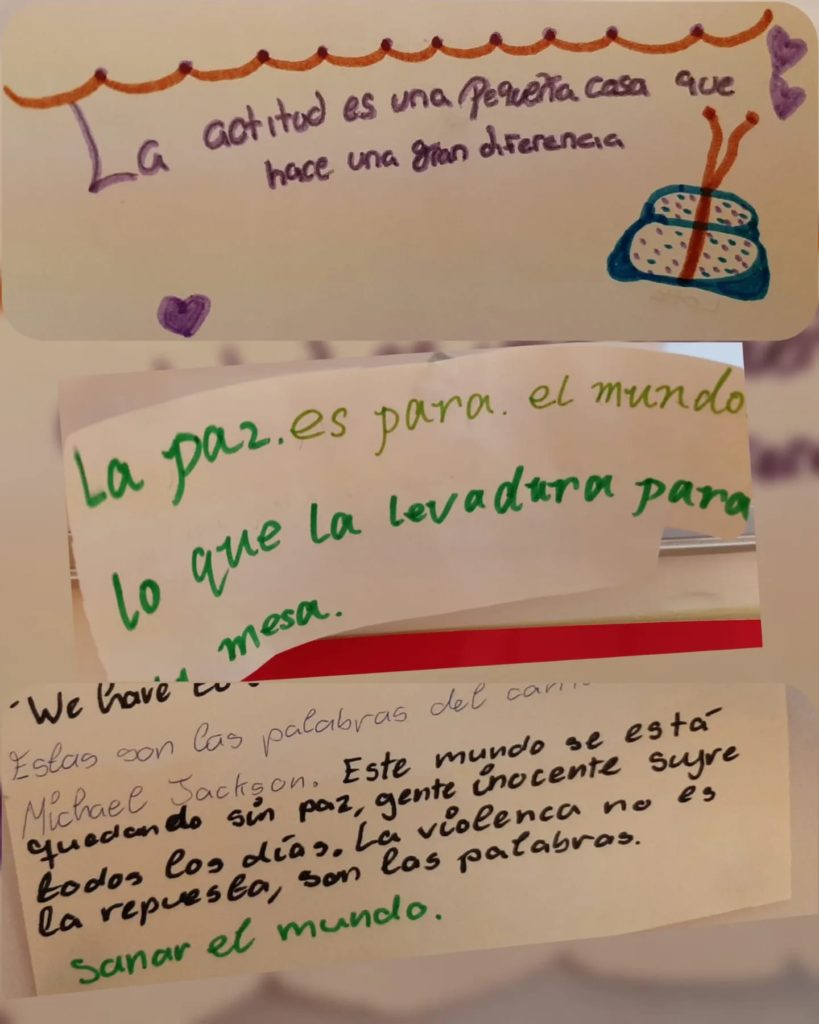 La actitud es una pequeña casa que
hace una gran diferencia
La paz. es para. el mundo
lo que la levadura para
mesa.
"We have
Estas son las palabras del
Michael Jackson. Este mundo se está
quedando sin paz, gente inocente sufre
todos los días. La violenca no es
la repuesta, son las palabras.
Sanar el mundo.